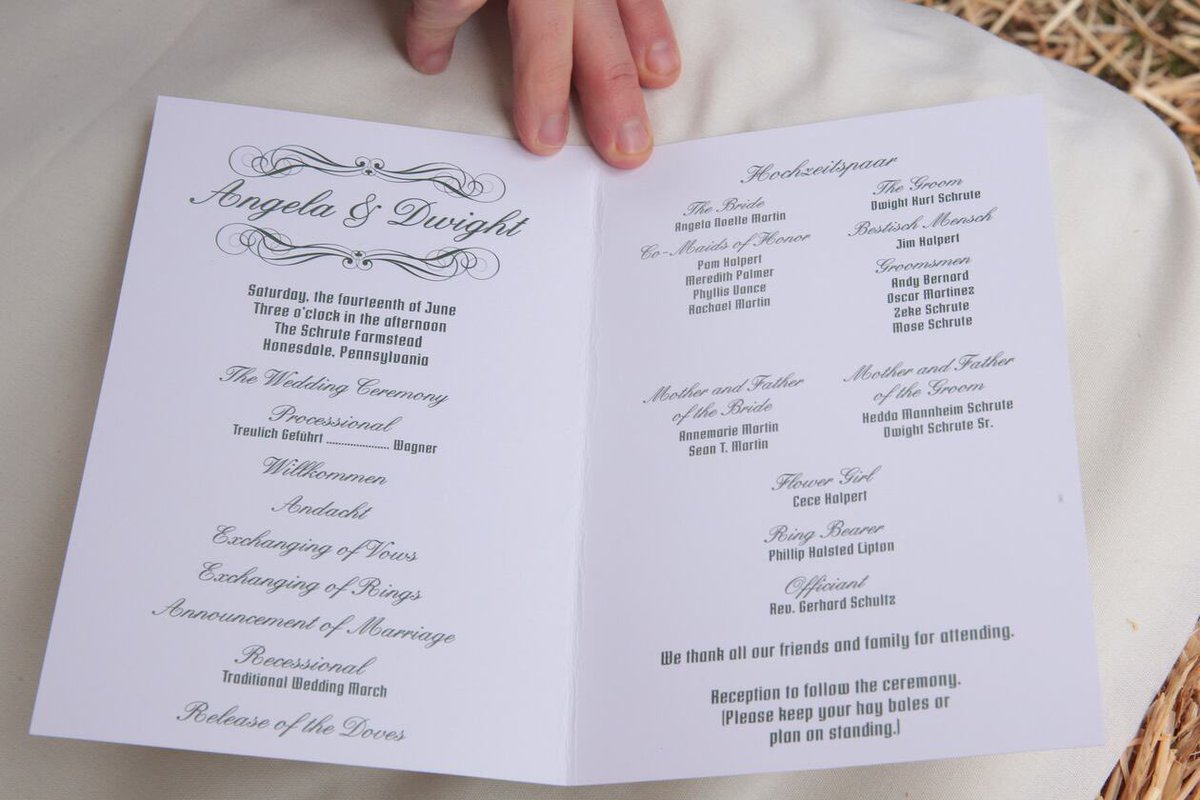 Angela & Dwight
Saturday, the fourteenth of June
Three o'clock in the afternoon
The Schrute Farmstead
Honesdale, Pennsylvania
The Wedding Ceremony
Processional
Treulich Geführt ..................... Wagner
Willkommen
Andacht
Exchanging of Vows
Exchanging of Rings
Announcement of Marriage
Recessional
Traditional Wedding March
Release of the Doves
Hochzeitspaar
The Bride
Angela Noelle Martin
Co-Maids of Honor
Pam Halpert
Meredith Palmer
Phyllis Vance
Rachael Martin
The Groom
Dwight Kurt Schrute
Bestisch Mensch
Jim Halpert
Groomsmen
Andy Bernard
Oscar Martinez
Zeke Schrute
Mose Schrute
Mother and Father
of the Bride
Annemarie Martin
Sean T. Martin
Mother and Father
of the Groom
Hedda Mannheim Schrute
Dwight Schrute Sr.
Flower Girl
Cece Halpert
Ring Bearer
Phillip Halsted Lipton
Officiant
Rev. Gerhard Schultz
We thank all our friends and family for attending.
Reception to follow the ceremony.
(Please keep your hay bales or
plan on standing.)